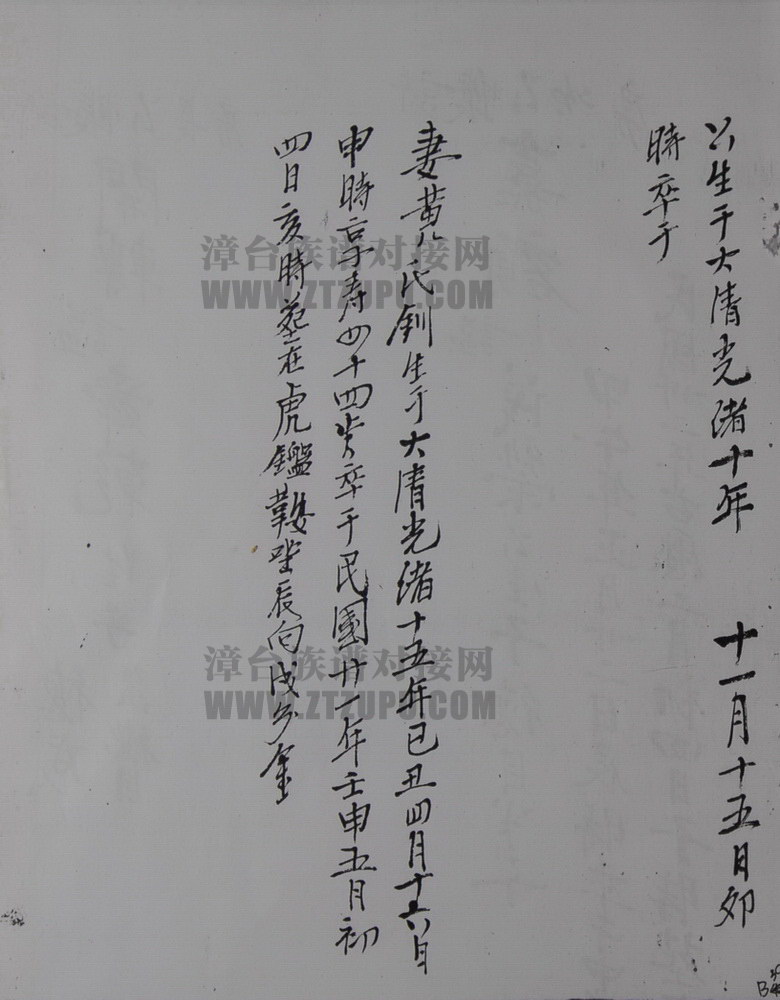 公生于大清光绪十年 十一月十五日卯
時卒于
妻黄氏釧生于大清光绪十五年己丑四月十六日
申時享寿四十四岁卒于民國廿一年壬申五月初
四日亥時墓在虎鑑鞍坐辰向戌分金
漳台族谱对接网
WWW.ZTZUPU.COM
漳台族谱对接网
WWW.ZTZUPU.COM